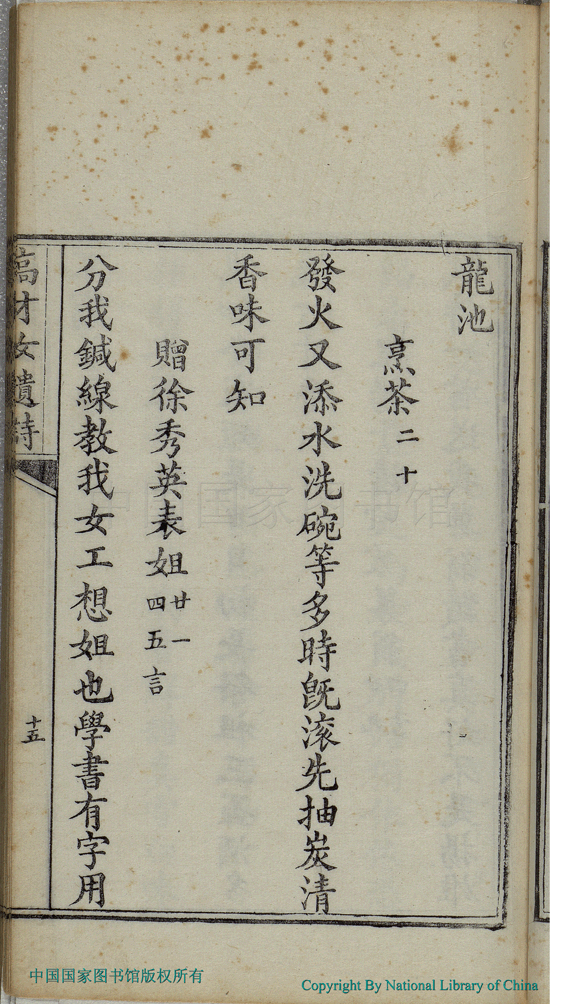 龍池
烹茶二十
發火又添水洗碗等多時旣滚先抽炭清
香味可知
贈徐秀英表姐廿一四五言
分我鍼線教我女工想姐也學書有字用
高才女遺詩
十五
中国国家图书馆
中国国家图书馆版权所有
Copyright By National Library of China